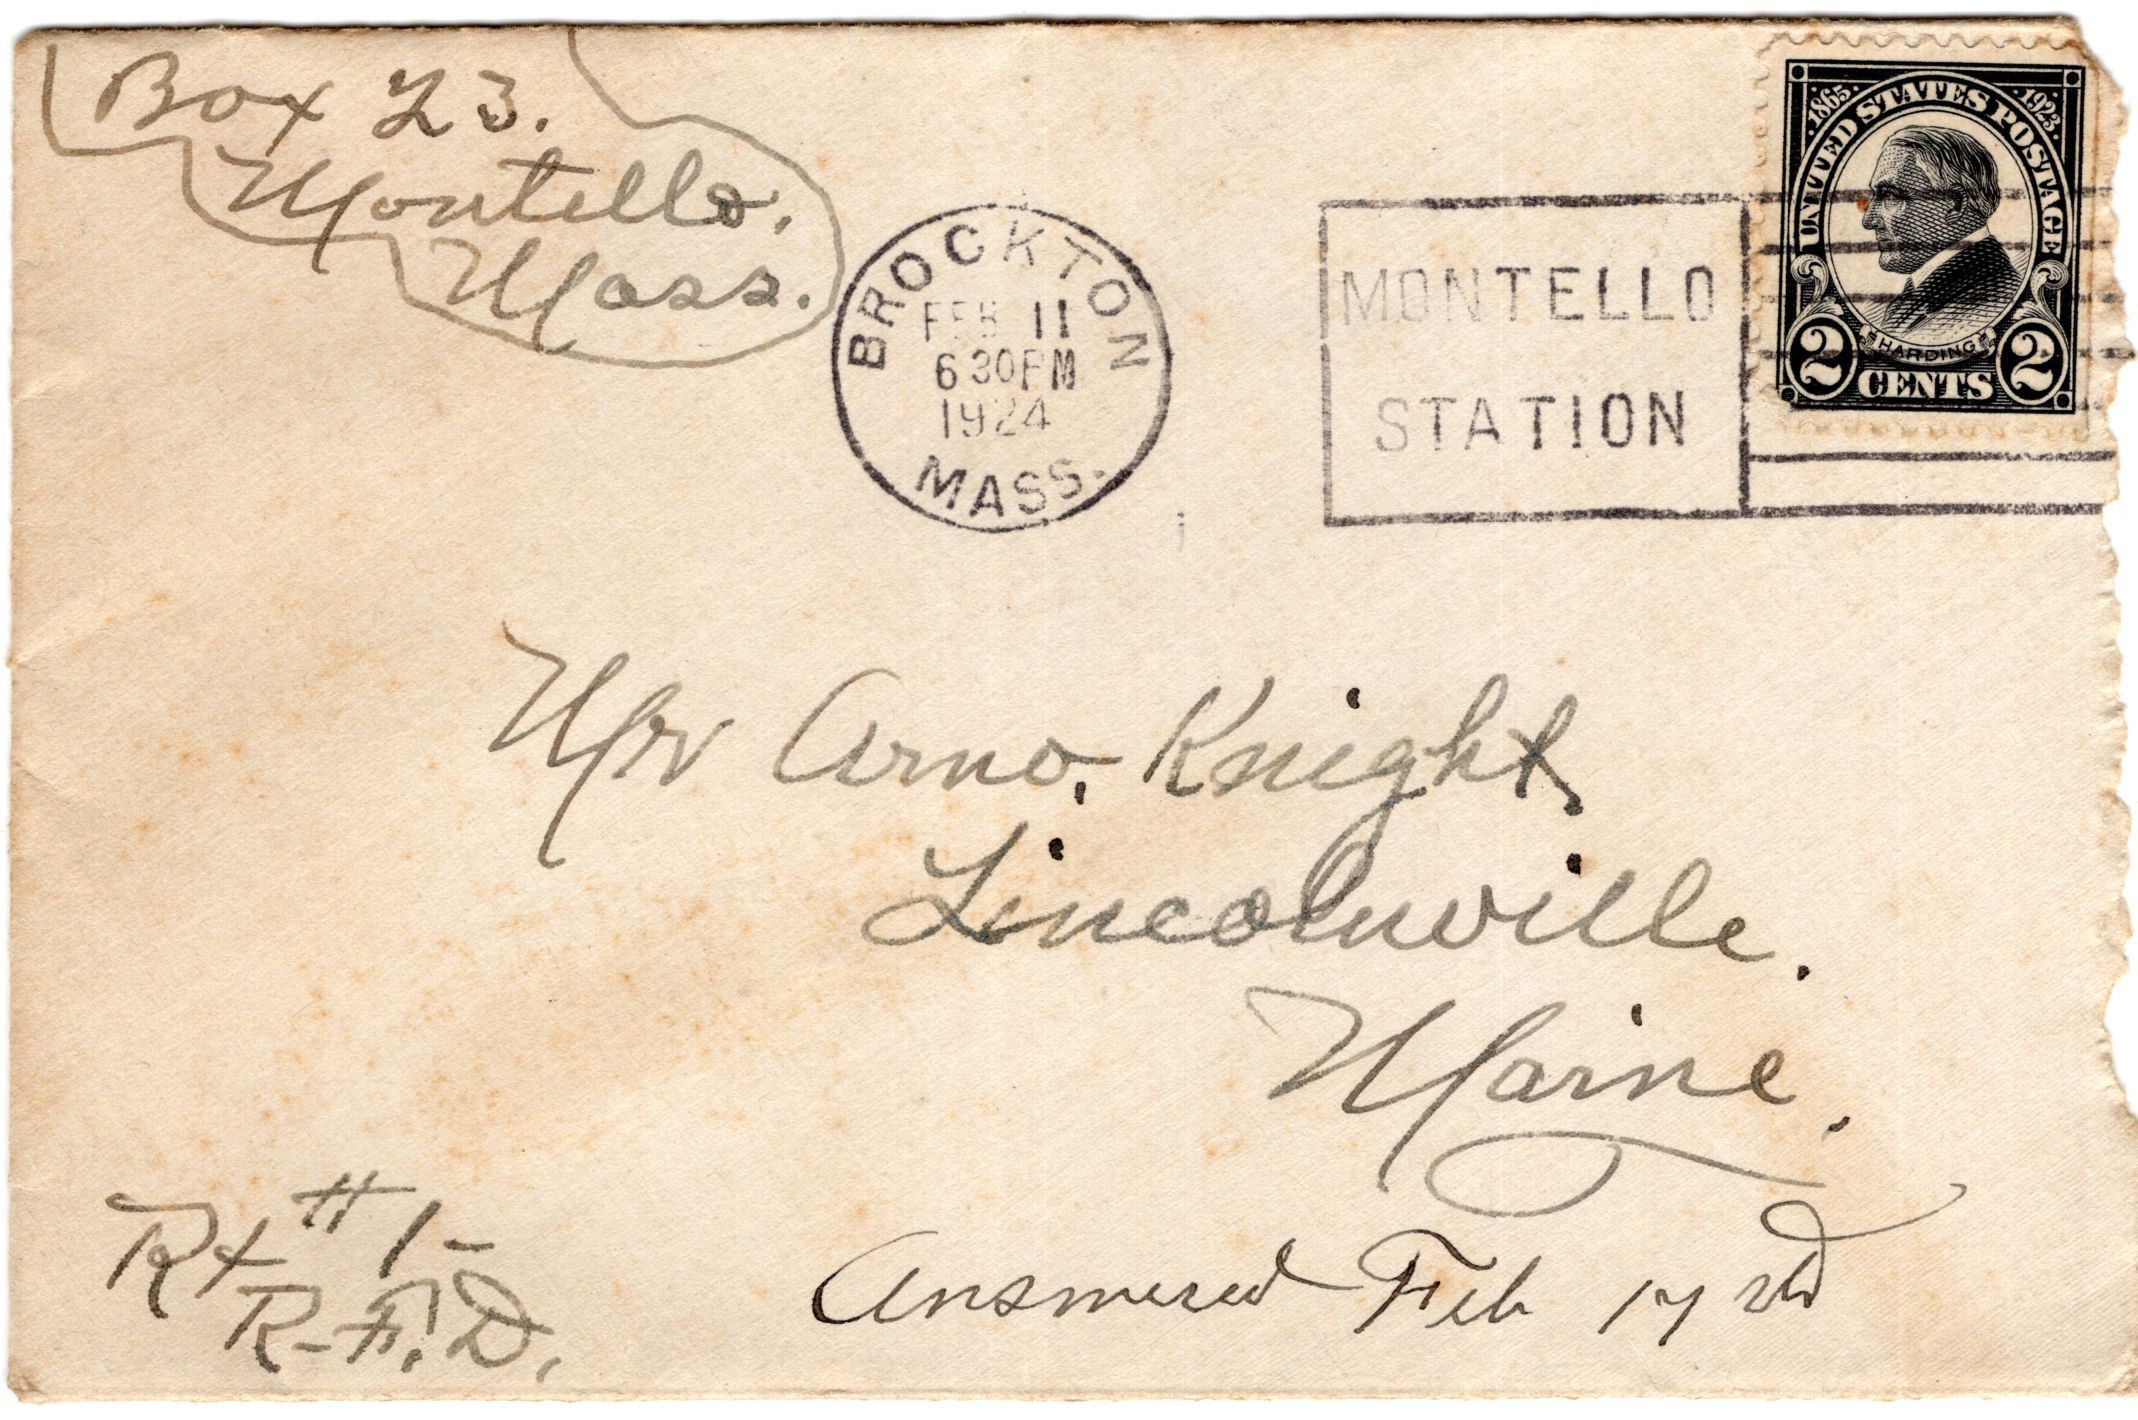 Box 23.
Montello.
Mass.
BROCKTON
FEB 11
6 30 PM
1924
MASS.
MONTELLO
STATION
1865 1923
UNITED STATES POSTAGE
HARDING
2 CENTS 2
Mr Arno. Knight,
Lincolnville.
Maine.
Rt #1-
R-F.D.
Answered Feb 17 rd